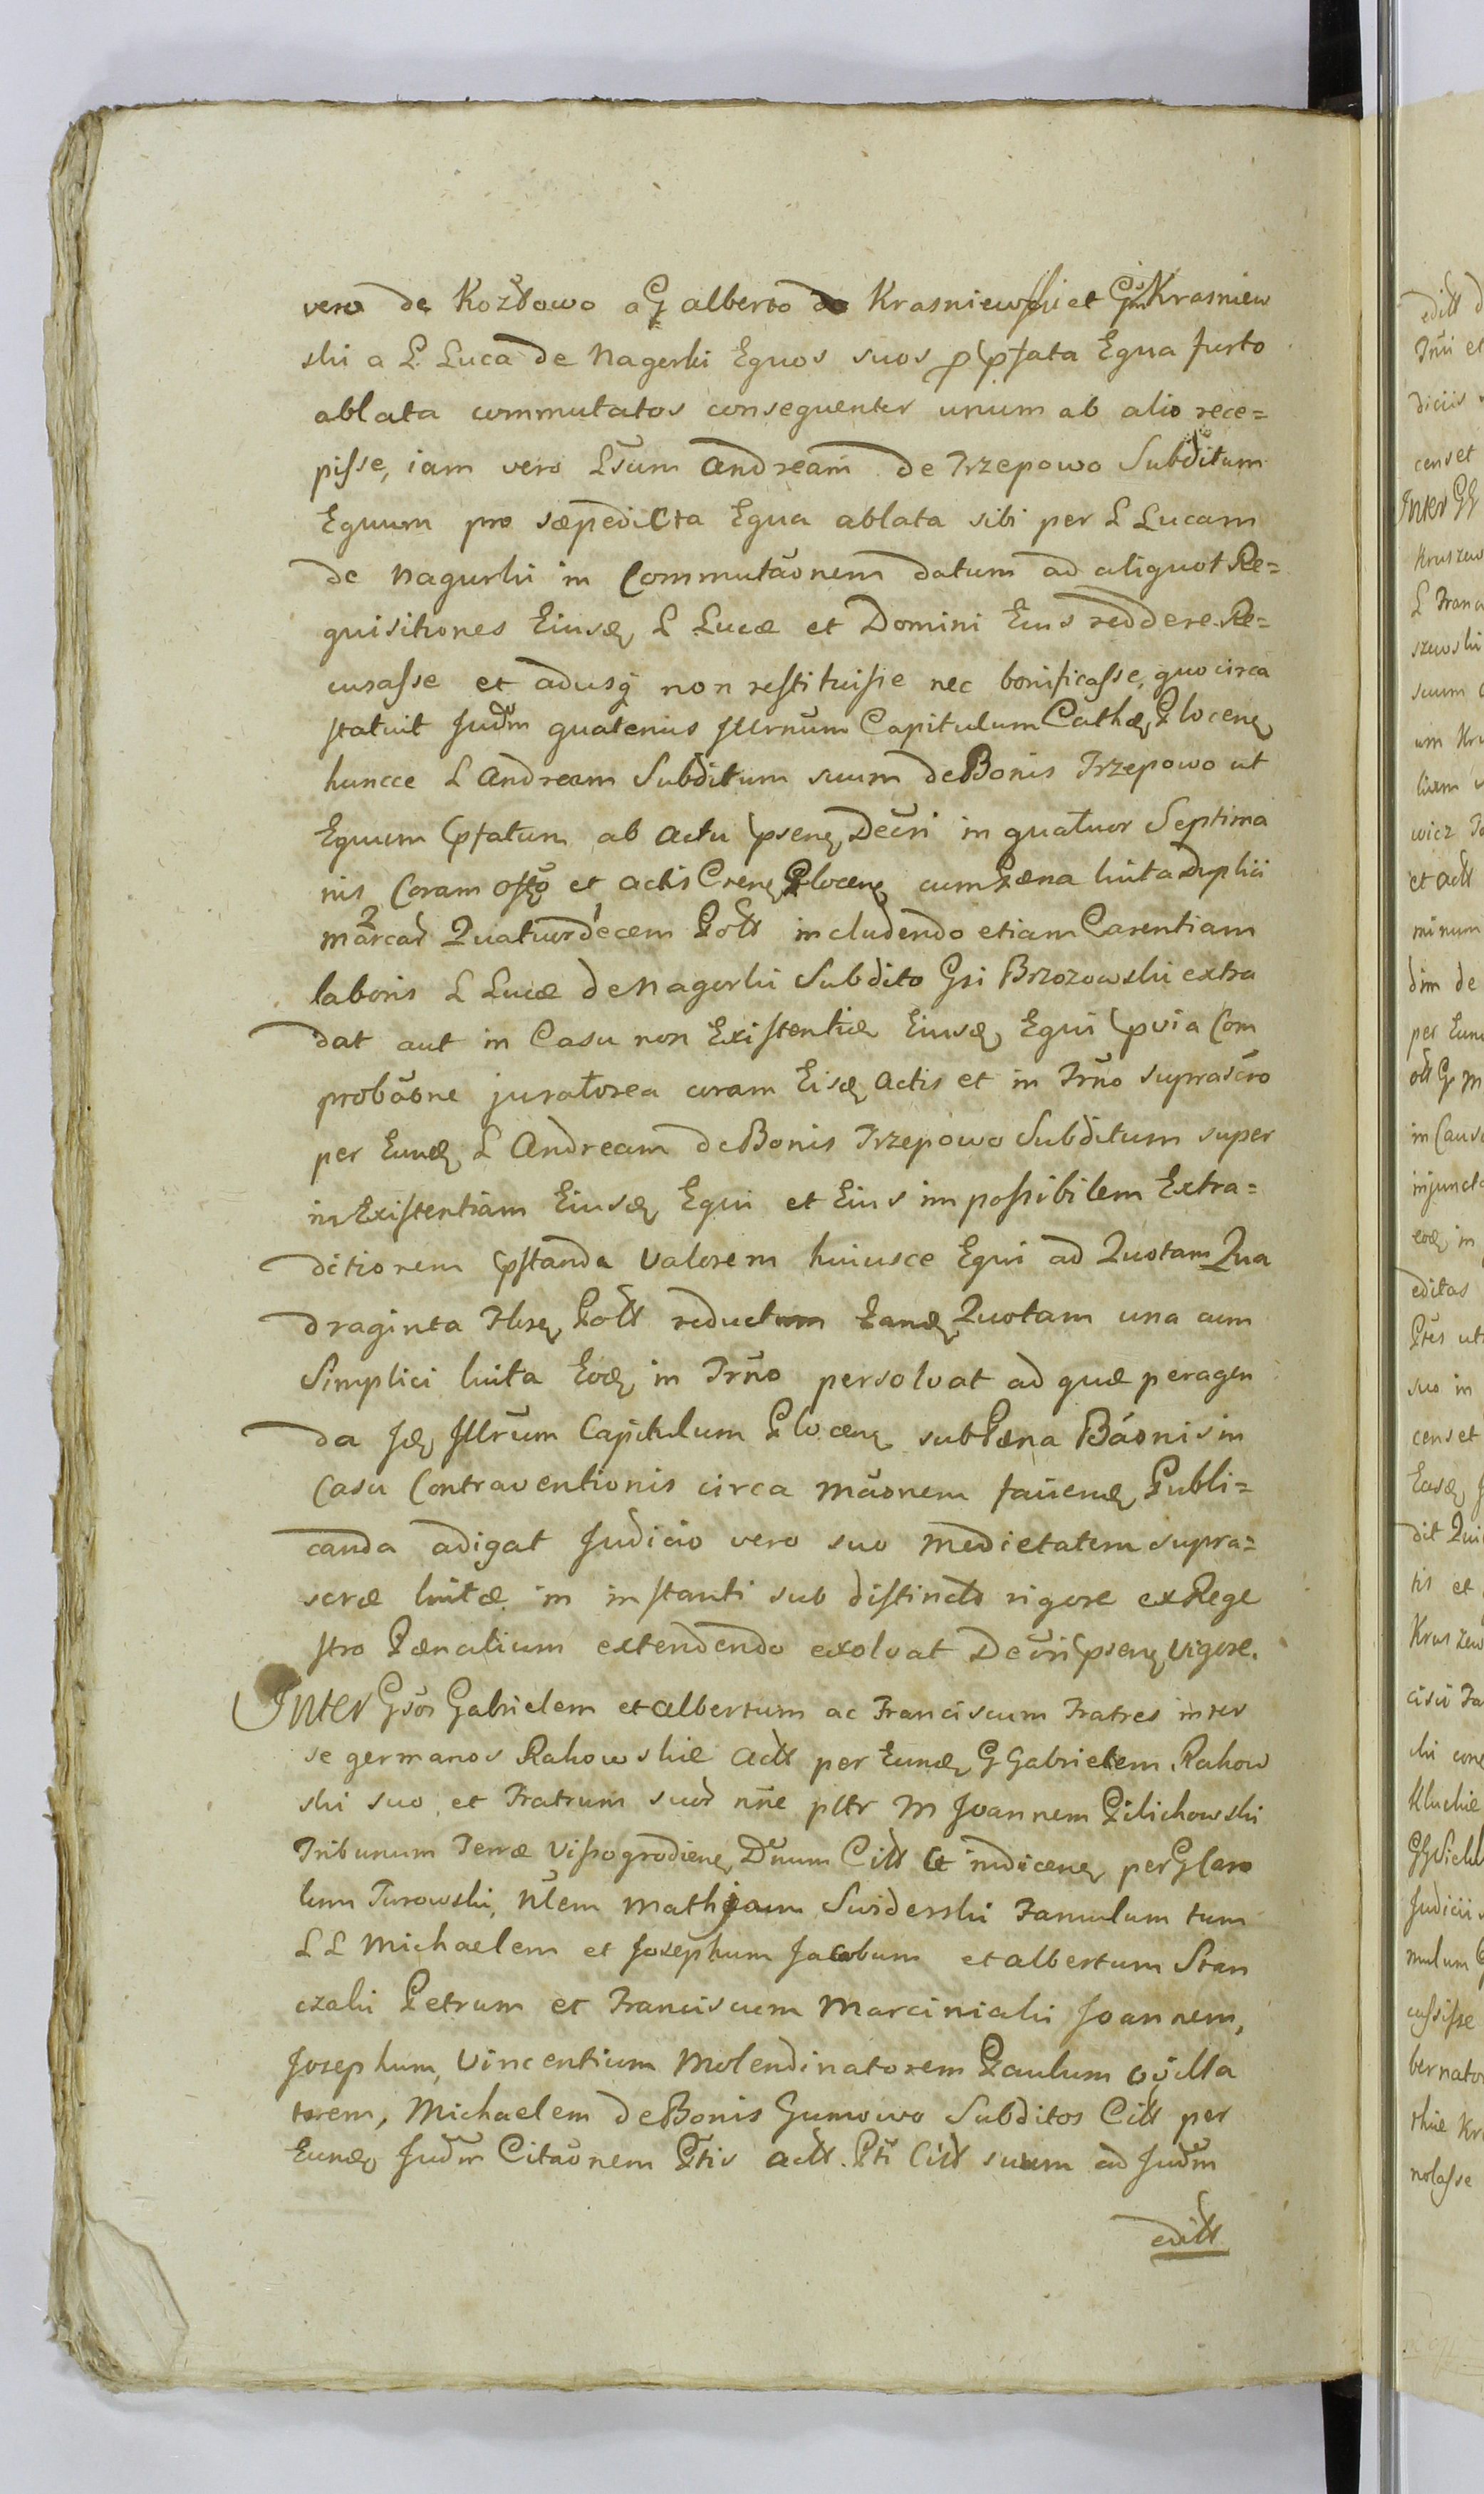 vero de Kozłowo a G alberto de Krasniewski et Gsum Krasniew
ski a L. Luca de Nagorki Equos suos p pfata Equa furto
ablata commutatos consequenter unum ab alio rece=
pisse, iam vero Lsum Andream de Trzepowo Subditum
Equum pro sæpedicta Equa ablata sibi per L Lucam
de Nagurki in Commutãonem datum ad aliquot Re=
quisitiones Eiusd L Lucæ et Domini Eius reddere Re=
cusasse et adusq non restituisse nec bonificasse, quo circa
statuit Judm quatenus Illrnum Capitulum Cathæ Plocen
huncce L Andream Subditum suum de Bonis Trzepowo ut
Equum pfatum ab actu psen Decri in quatuor Septima
nis Coram offo et actis Cren Plocen cum Pæna luita Duplici
marcar Quatuordecem Poll includendo etiam Carentiam
laboris L Lucæ de Nagorki Subdito Gsi Brzozowski extra
dat aut in Casu non Existentiæ Eiusd Equi pvia Com
probãone juratorea coram Eisd Actis et in Trno suprascro
per Eund L Andream de Bonis Trzepowo Subditum super
in Existentiam Eiusd Equi et Eius impossibilem Extra=
ditionem pstanda valorem huiusce Equi ad Quotam Qua
draginta Flren Poll reductum Eand Quotam una cum
Simplici luita Eod in Trno persolvat ad quæ peragen
da Id Illrum Capitulum Plocen sub Pæna Bãonis in
Casu Contraventionis circa mãonem facien Publi=
canda adigat Judicio vero suo medietatem supra=
scræ luitæ in instanti sub distincto rigore ex Rege
stro Pænalium extendendo exolvat Decri psen vigore.
Inter Gsos Gabrielem et Albertum ac Franciscum Fratres inter
se germanos Rakowskie Actt per Eund G Gabrielem Rakow
ski suo et Fratrum suor nne pltr M Joannem Pilichowski
Tribunum Terræ Vissogrodien Dnum Citt et indicen per G Caro
lum Turowski, Nlem Mathiam Swiderski Famulum tum
L L Michaelem et Josephum Jacobum et Albertum Stan
czaki Petrum et Franciscum Marciniaki Joannem,
Josephum, Vincentium Molendinatorem Paulum
torem, Michaelem de Bonis Gumowo Subditos Citt per
Eund Judm Citãonem Ptis Actt. Pti Citt suum ad Judm
editt